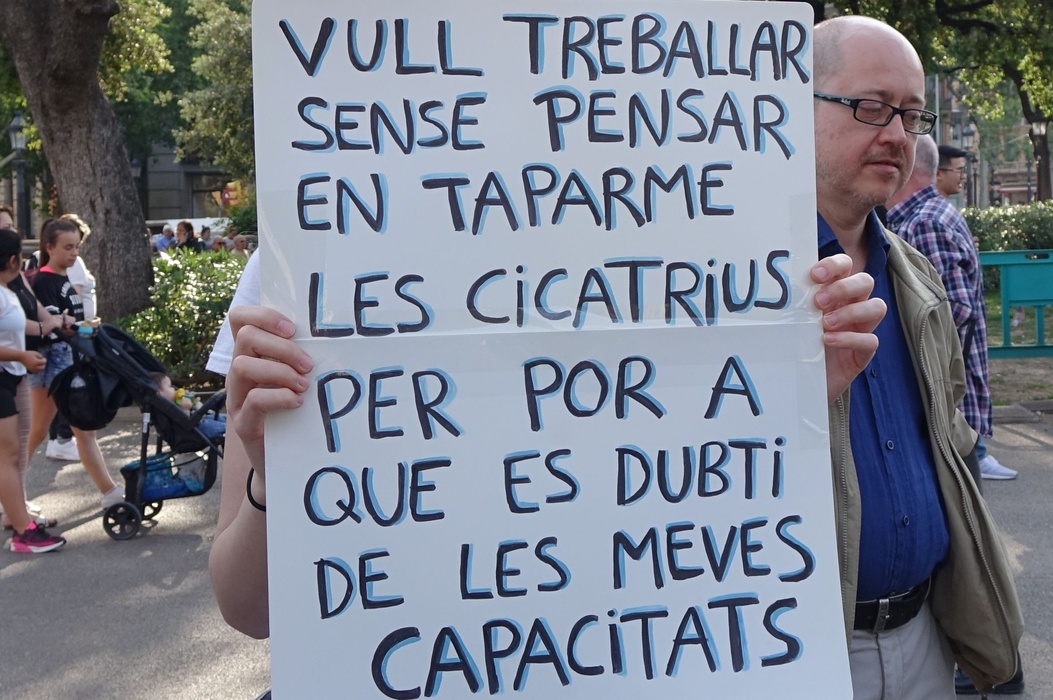 VULL TREBALLAR
SENSE PENSAR
EN TAPARME
LES CICATRIUS
PER POR A
QUE ES DUBTI
DE LES MEVES
CAPACITATS